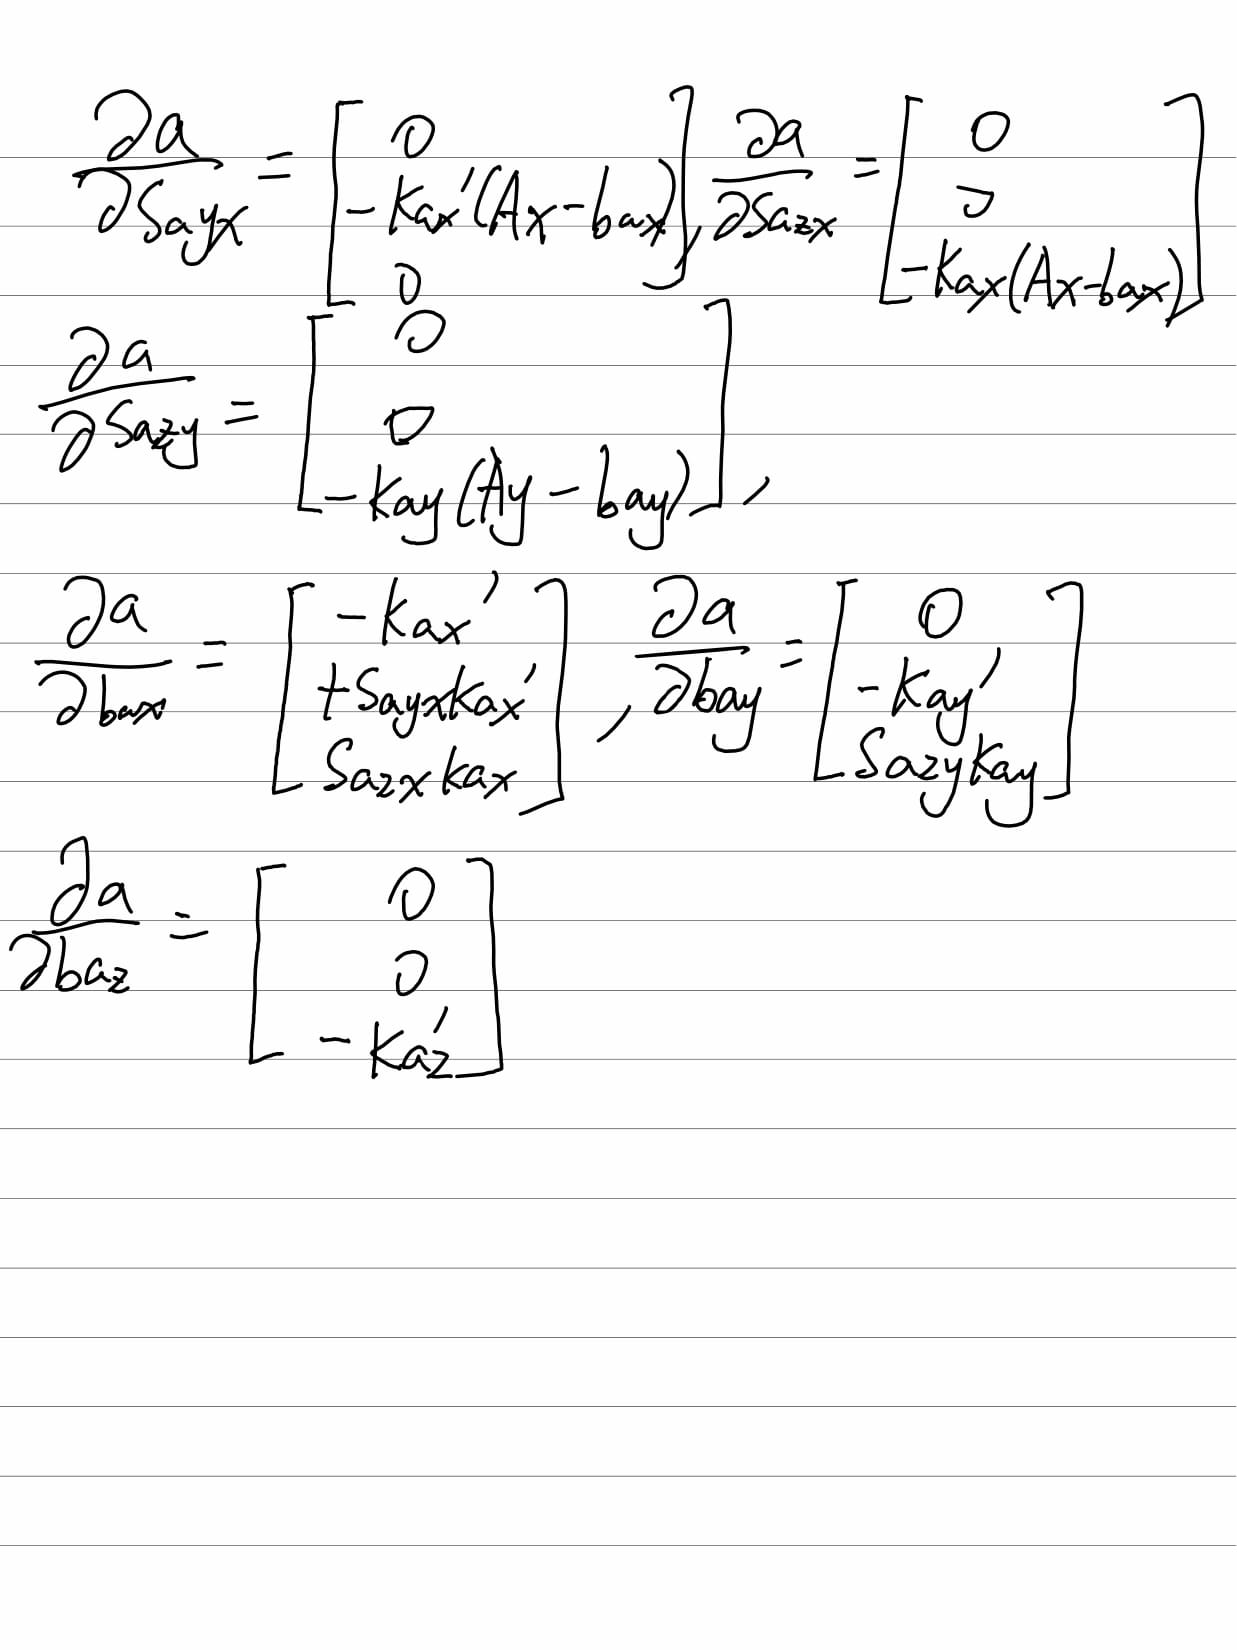 ∂a/∂Sayx = [0; -Kax'(Ax-bax); 0], ∂a/∂Sazx = [0; 0; -Kax(Ax-bax)]
∂a/∂Sazy = [0; 0; -Kay(Ay-bay)],
∂a/∂bax = [-Kax'; +SayxKax'; SazxKax], ∂a/∂bay = [0; -Kay'; SazyKay]
∂a/∂baz = [0; 0; -Kaz']